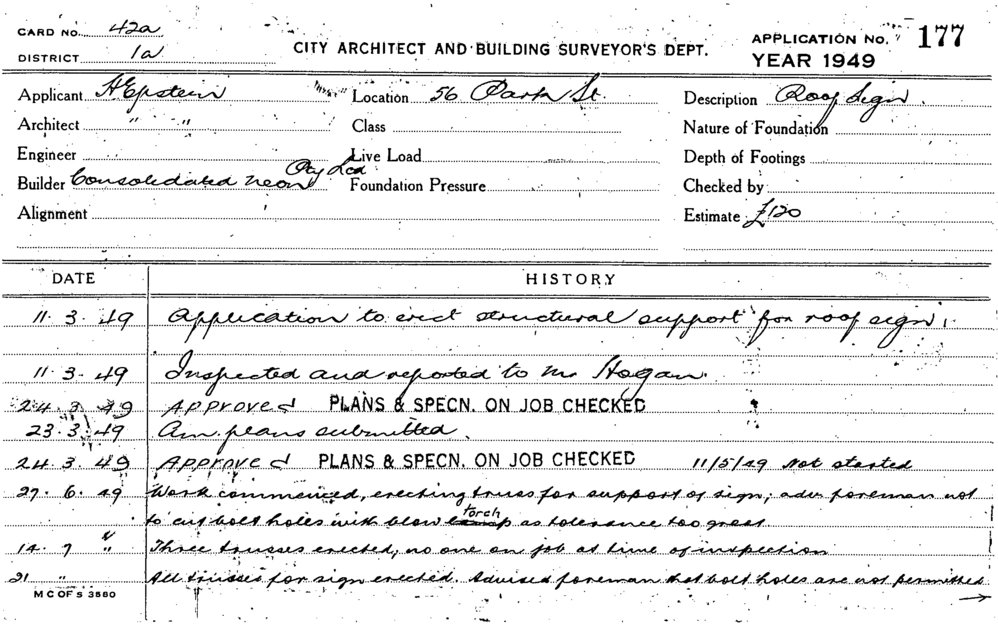 CARD NO. 42a
DISTRICT 1a
CITY ARCHITECT AND BUILDING SURVEYOR'S DEPT.
APPLICATION No. 177
YEAR 1949
Applicant H Epstein
Location 56 Park St.
Description Roof Sign.
Architect " "
Class
Nature of Foundation
Engineer
Live Load
Depth of Footings
Builder Consolidated Neon Pty Ltd
Foundation Pressure
Checked by
Alignment
Estimate £120
DATE HISTORY
11. 3. 49 Application to erect structural support for roof sign.
11. 3. 49 Inspected and reported to Mr Hogan.
24. 3. 49 Approved PLANS & SPECN. ON JOB CHECKED
23. 3. 49 Am. plans submitted.
24. 3. 49 Approved PLANS & SPECN. ON JOB CHECKED 11/5/49 Not started
27. 6. 49 Work commenced, erecting truss for support of sign; adv. foreman not
to cut bolt holes with blow torch as tolerance too great
14. 7 " Three trusses erected, no one on job at time of inspection
21 " All trusses for sign erected. Advised foreman that bolt holes are not permitted
M C OF S 3580